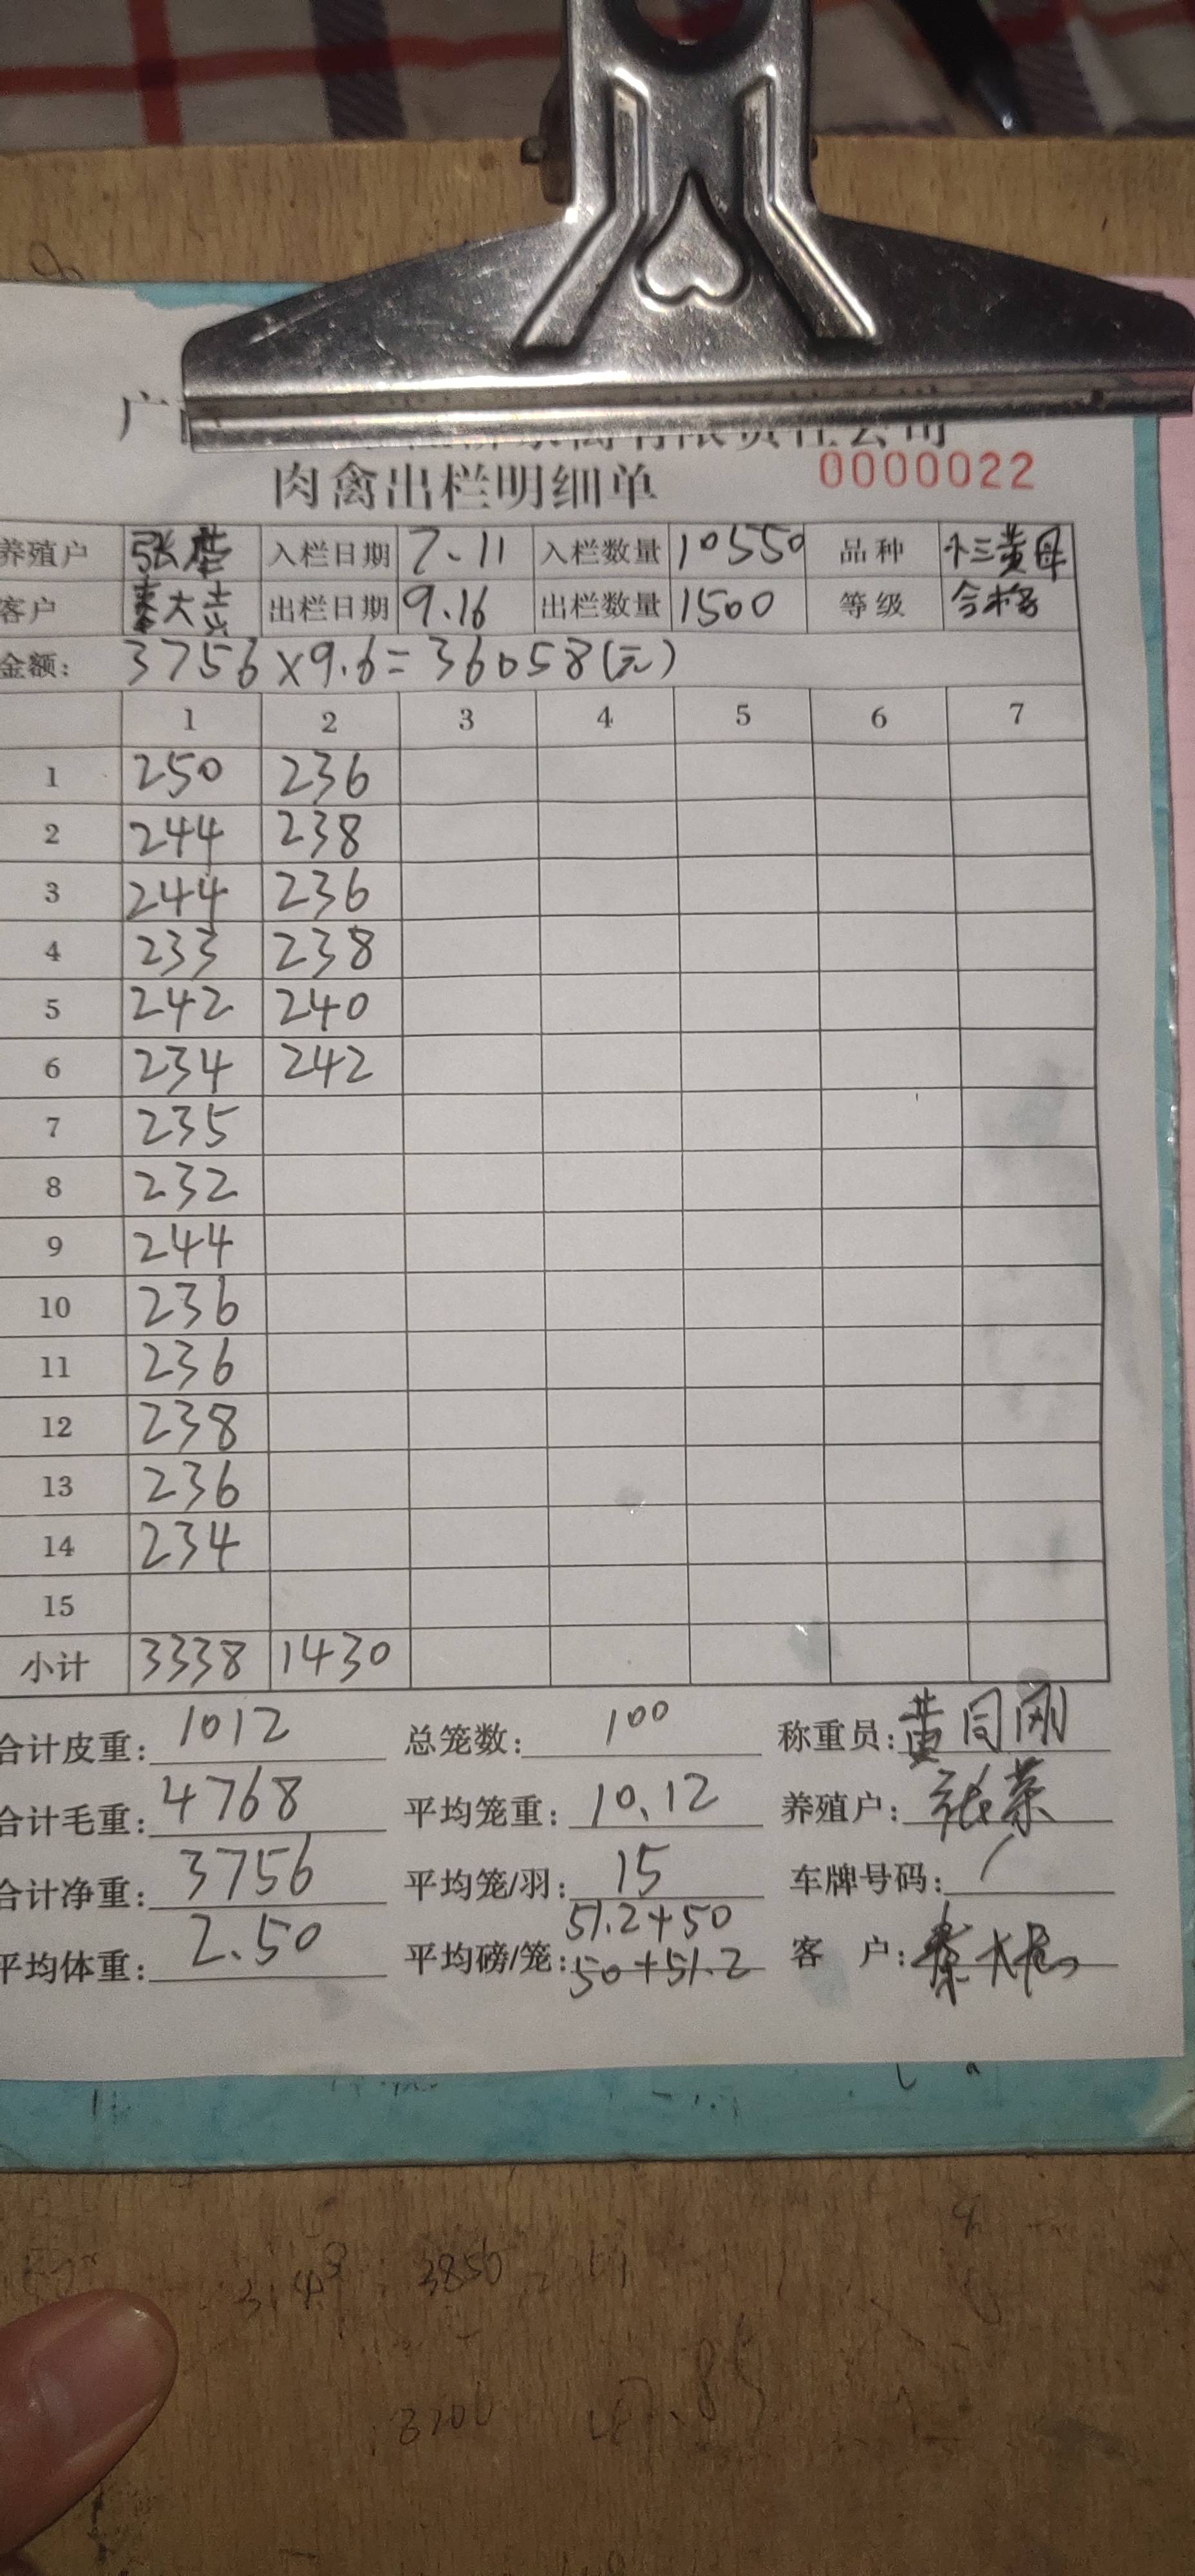 肉禽出栏明细单 0000022
养殖户 张荣 入栏日期 7.11 入栏数量 10550 品种 十三黄母
客户 秦大 出栏日期 9.16 出栏数量 1500 等级 合格
金额: 3756×9.6=36058(元)
1 2 3 4 5 6 7
1 250 236
2 244 238
3 244 236
4 233 238
5 242 240
6 234 242
7 235
8 232
9 244
10 236
11 236
12 238
13 236
14 234
15
小计 3338 1430
合计皮重: 1012 总笼数: 100 称重员: 黄同刚
合计毛重: 4768 平均笼重: 10.12 养殖户: 张荣
合计净重: 3756 平均笼/羽: 15 车牌号码: /
51.2+50
平均体重: 2.50 平均磅/笼: 50+51.2 客户: 秦大